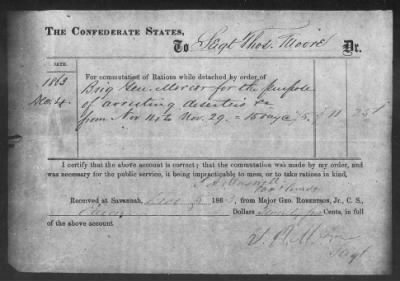 THE CONFEDERATE STATES,
To Sagt Thos. Moore Dr.
DATE.
1863 For commutation of Rations while detached by order of
Dec 4. Brig Gen. Mercer for the purpose
of arresting deserters &c
from Nov 14 to Nov. 29. = 15 days 75. $ 11 25
I certify that the above account is correct; that the commutation was made by my order, and
was necessary for the public service, it being impracticable to mess, or to take rations in kind,
Received at Savannah, Dec 186 , from Major GEO. ROBERTSON, JR., C. S.,
Eleven Dollars Twenty five Cents, in full
of the above account
Sagt